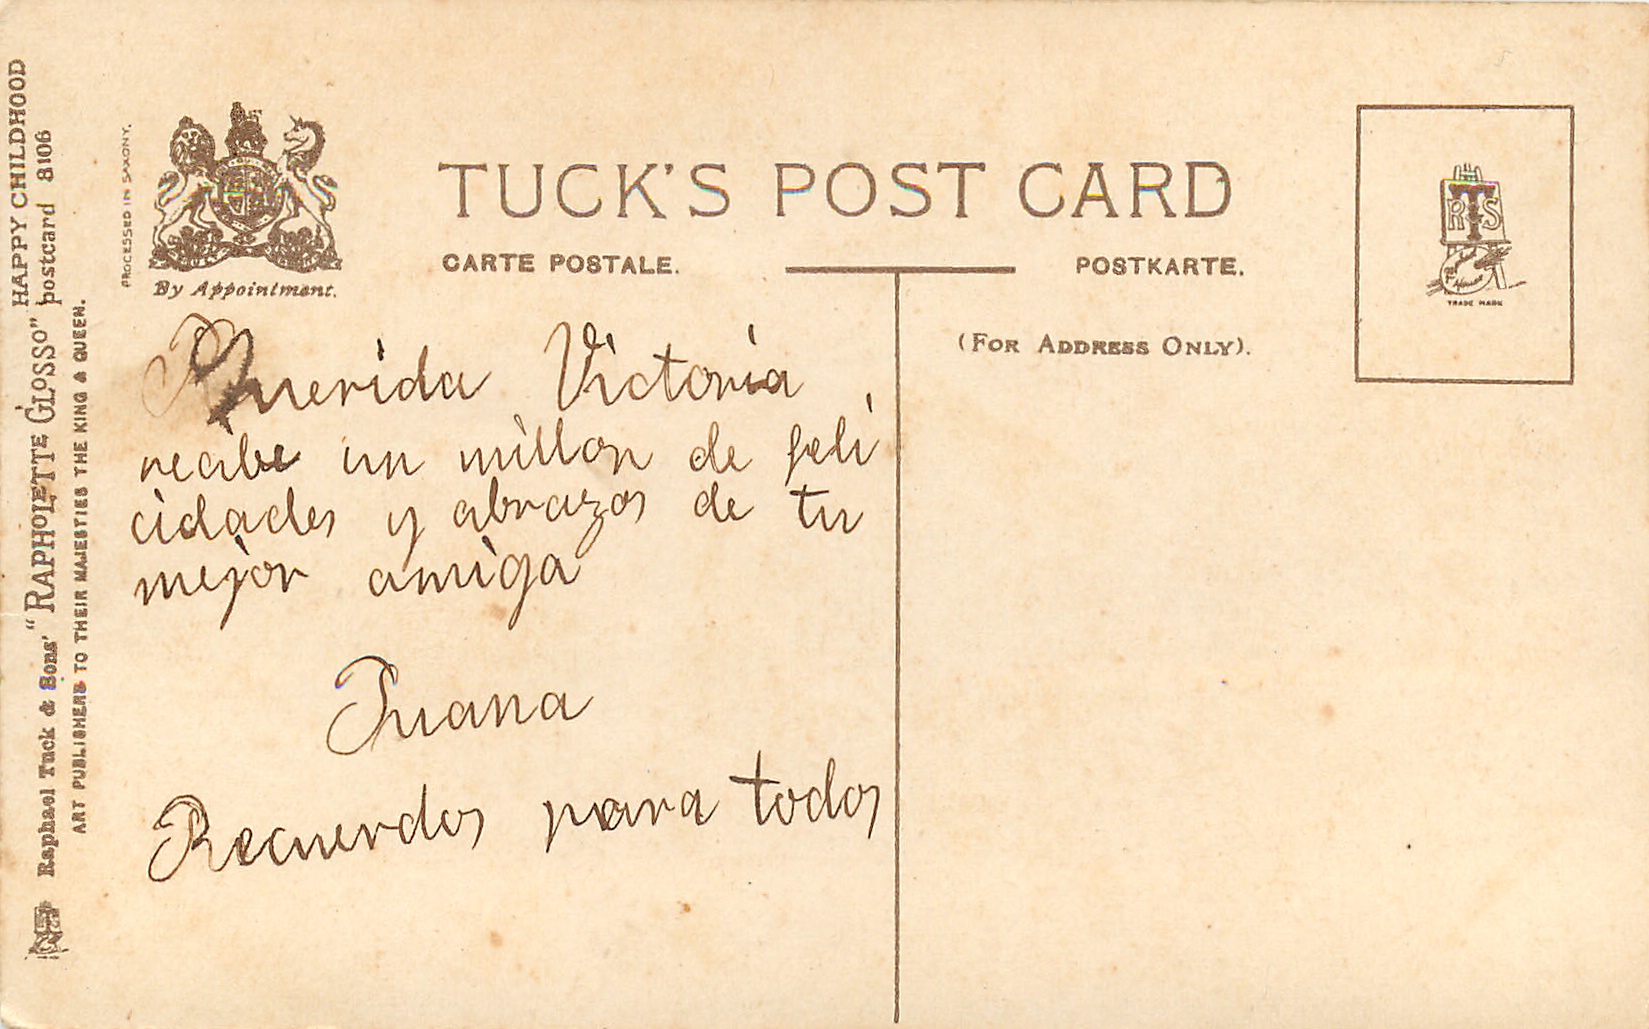 HAPPY CHILDHOOD
Raphael Tuck & Sons' "RAPHOLETTE GLOSSO" postcard 8106
ART PUBLISHERS TO THEIR MAJESTIES THE KING & QUEEN.
PROCESSED IN SAXONY.
By Appointment.
TUCK'S POST CARD
CARTE POSTALE.
POSTKARTE.
(FOR ADDRESS ONLY).
RTS
TRADE MARK
Querida Victoria
recibe un millon de feli
cidades y abrazos de tu
mejor amiga
Juana
Recuerdos para todos